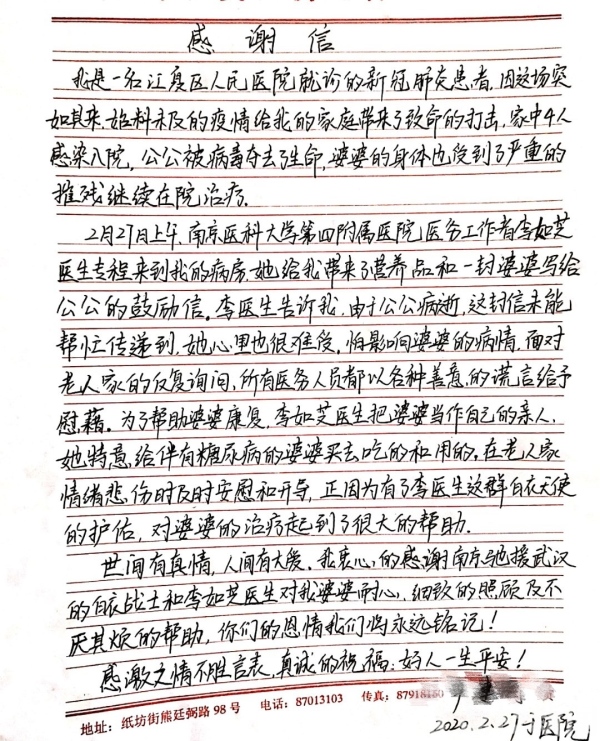 感谢信
我是一名江夏区人民医院就诊的新冠肺炎患者,因这场突
如其来、始料未及的疫情给我的家庭带来了致命的打击,家中4人
感染入院,公公被病毒夺去了生命,婆婆的身体也受到了严重的
摧残继续在院治疗.
2月27日上午,南京医科大学第四附属医院医务工作者李如芝
医生专程来到我的病房,她给我带来了营养品和一封婆婆写给
公公的鼓励信。李医生告诉我,由于公公病逝,这封信未能
帮忙传递到,她心里也很难受。怕影响婆婆的病情,面对
老人家的反复询问,所有医务人员都以各种善意的谎言给予
慰藉。为了帮助婆婆康复,李如芝医生把婆婆当作自己的亲人,
她特意给伴有糖尿病的婆婆买去吃的和用的,在老人家
情绪悲伤时及时安慰和开导,正因为有了李医生这群白衣天使
的护佑,对婆婆的治疗起到了很大的帮助.
世间有真情,人间有大爱。我衷心的感谢南京驰援武汉
的白衣战士和李如芝医生对我婆婆耐心、细致的照顾及不
厌其烦的帮助,你们的恩情我们将永远铭记!
感激之情不胜言表,真诚的祝福:好人一生平安!
地址:纸坊街熊廷弼路98号 电话:87013103 传真:87918180
2020.2.27于医院